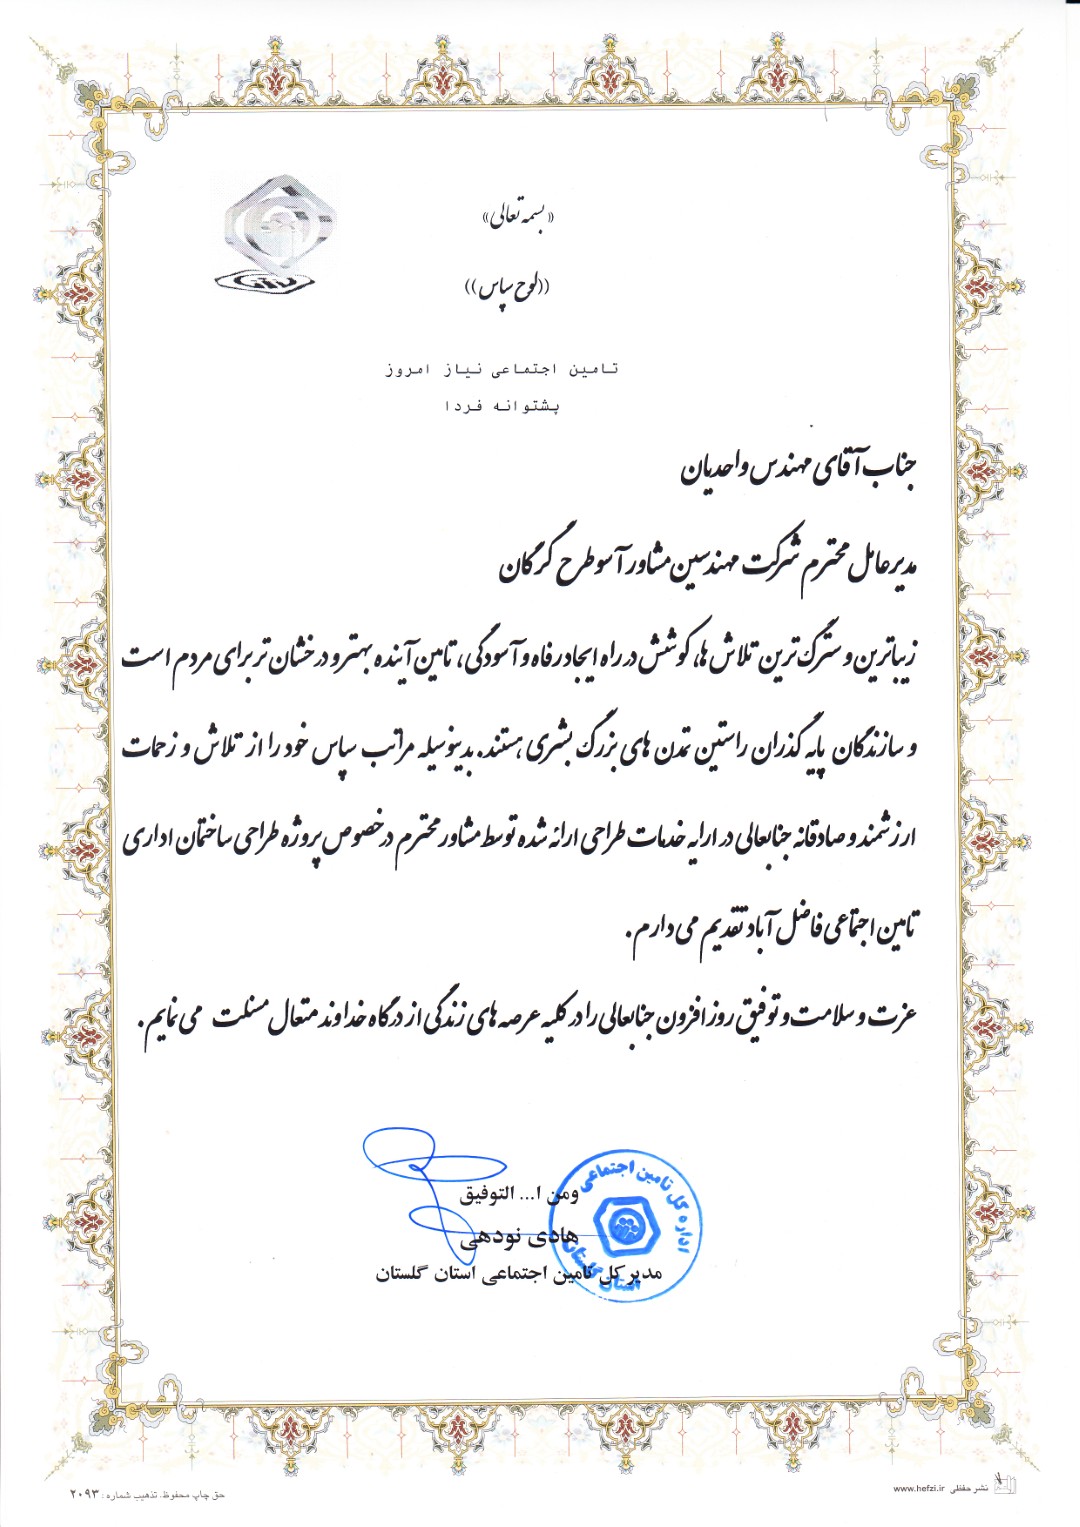 « بسمه تعالی»
((لوح سپاس))
تامین اجتماعی نیاز امروز
پشتوانه فردا
جناب آقای مهندس واحدیان
مدیرعامل محترم شرکت مهندسین مشاور آسو طرح گرگان
زیباترین و سترگ ترین تلاش ها، کوشش در راه ایجاد رفاه و آسودگی، تامین آینده بهتر و درخشان تر برای مردم است
و سازندگان پایه گذران راستین تمدن های بزرگ بشری هستند. بدینوسیله مراتب سپاس خود را از تلاش و زحمات
ارزشمند و صادقانه جنابعالی در ارایه خدمات طراحی ارائه شده توسط مشاور محترم درخصوص پروژه طراحی ساختمان اداری
تامین اجتماعی فاضل آباد تقدیم می دارم.
عزت و سلامت و توفیق روز افزون جنابعالی را در کلیه عرصه های زندگی از درگاه خداوند متعال مسئلت می نمایم.
ومن ا... التوفیق
هادی نودهی
مدیر کل تامین اجتماعی استان گلستان
اداره کل تامین اجتماعی
استان گلستان
حق چاپ محفوظ. تذهیب شماره: ۲۰۹۳
نشر حفظی www.hefzi.ir